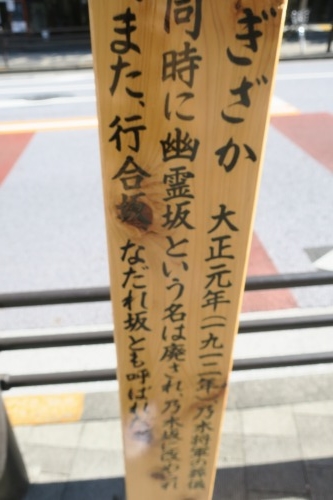 ぎざか
大正元年(一九一二年)乃木将軍の葬儀
同時に幽霊坂という名は廃され、乃木坂に改められ
また、行合坂、なだれ坂とも呼ばれ